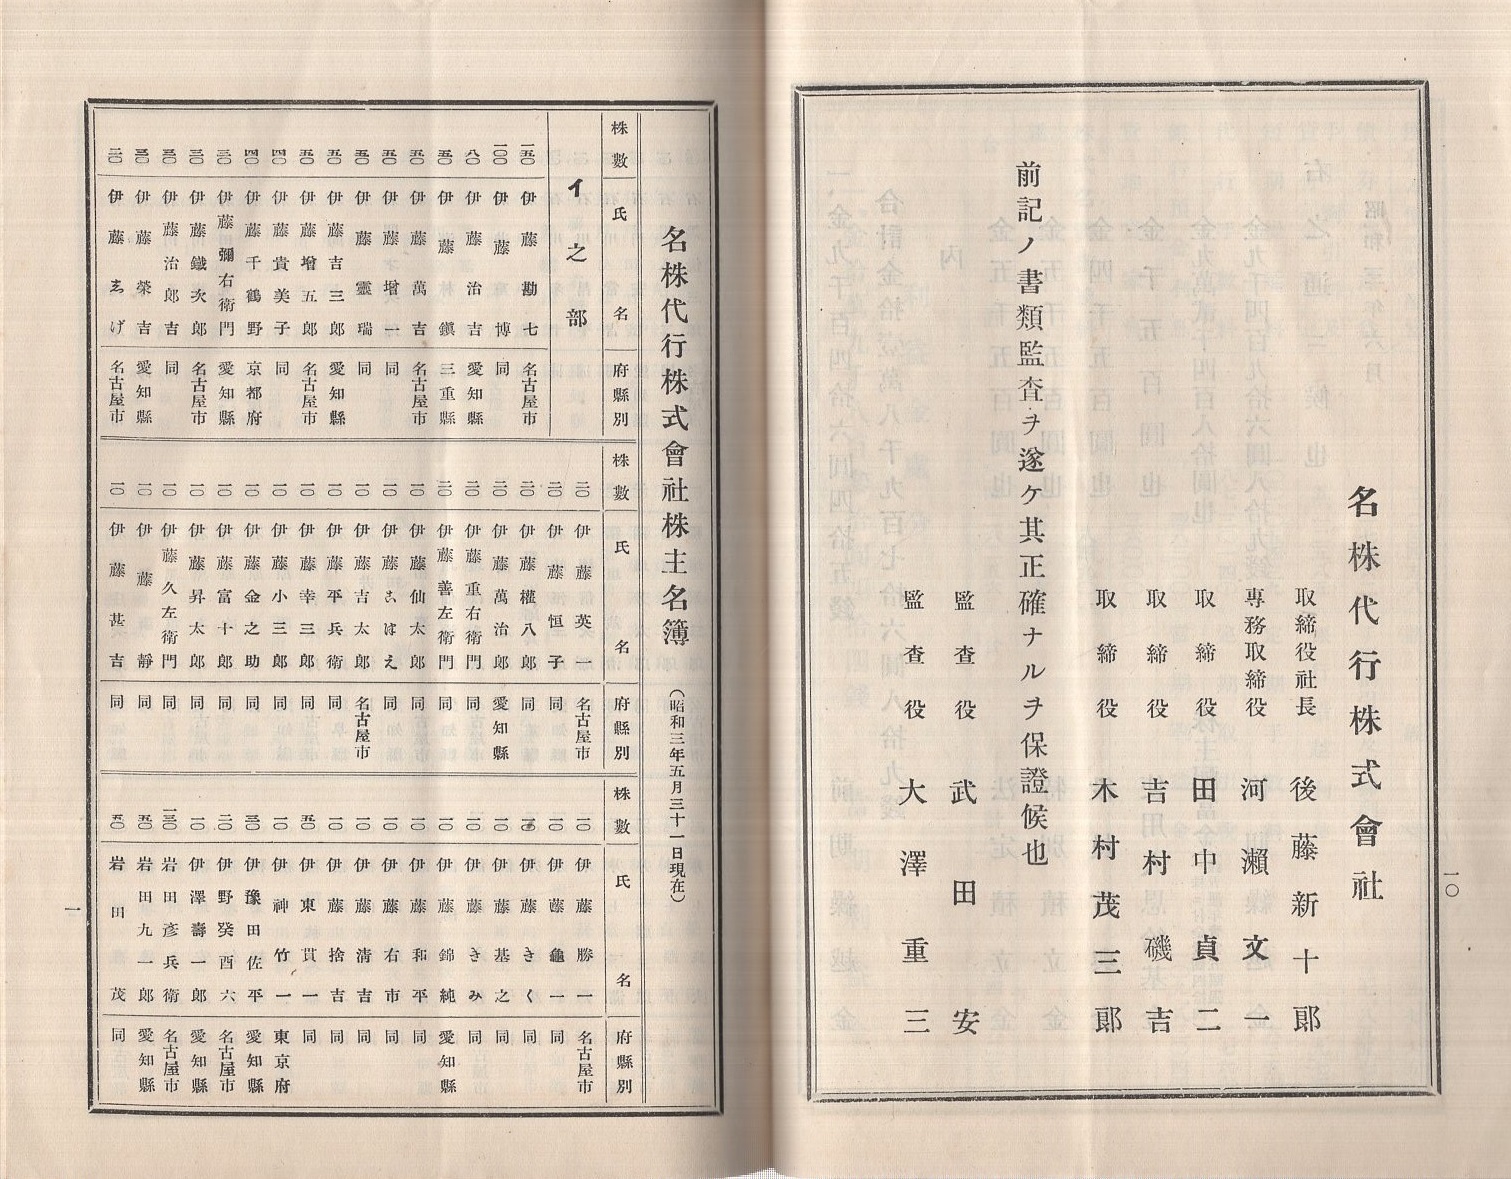 名株代行株式會社
取締役社長 後藤新十郎
專務取締役 河瀬文一
取締役 田中貞二
取締役 吉村磯吉
取締役 木村茂三郎
前記ノ書類監査ヲ遂ケ其正確ナルヲ保證候也
監査役 武田安
監査役 大澤重三
一〇
名株代行株式會社株主名簿(昭和三年五月三十一日現在)
株數 氏名 府縣別
イ之部
一五〇 伊藤勘七 名古屋市
一〇〇 伊藤博 同
八〇 伊藤治吉 愛知縣
五〇 伊藤鎭 三重縣
五〇 伊藤萬吉 名古屋市
五〇 伊藤增一 同
五〇 伊藤靈瑞 同
五〇 伊藤吉三郎 愛知縣
五〇 伊藤增五郎 名古屋市
四〇 伊藤貴美子 同
四〇 伊藤千鶴野 京都府
三〇 伊藤彌右衛門 愛知縣
三〇 伊藤鐵次郎 名古屋市
三〇 伊藤治郎吉 同
三〇 伊藤榮吉 愛知縣
二〇 伊藤志げ 名古屋市
株數 氏名 府縣別
二〇 伊藤英一 名古屋市
二〇 伊藤恒子 同
二〇 伊藤權八郎 同
二〇 伊藤萬治郎 愛知縣
二〇 伊藤重右衛門 同
二〇 伊藤善左衛門 同
一〇 伊藤仙太郎 同
一〇 伊藤こはえ 同
一〇 伊藤吉太郎 名古屋市
一〇 伊藤平兵衛 同
一〇 伊藤幸三郎 同
一〇 伊藤小三郎 同
一〇 伊藤金之助 同
一〇 伊藤富十郎 同
一〇 伊藤昇太郎 同
一〇 伊藤久左衛門 同
一〇 伊藤靜 同
一〇 伊藤甚吉 同
株數 氏名 府縣別
一〇 伊藤勝一 名古屋市
一〇 伊藤龜一 同
一〇 伊藤きく 同
一〇 伊藤基之 同
一〇 伊藤きみ 同
一〇 伊藤錦純 愛知縣
一〇 伊藤和平 同
一〇 伊藤右市 同
一〇 伊藤清吉 同
一〇 伊藤捨吉 同
五〇 伊東貫一 同
一〇 伊神竹一 東京府
三〇 伊豫田佐平 愛知縣
二〇 伊野癸酉六 名古屋市
一〇 伊澤壽一郎 愛知縣
一三〇 岩田彥兵衛 名古屋市
五〇 岩田九一郎 愛知縣
五〇 岩田茂 同
一